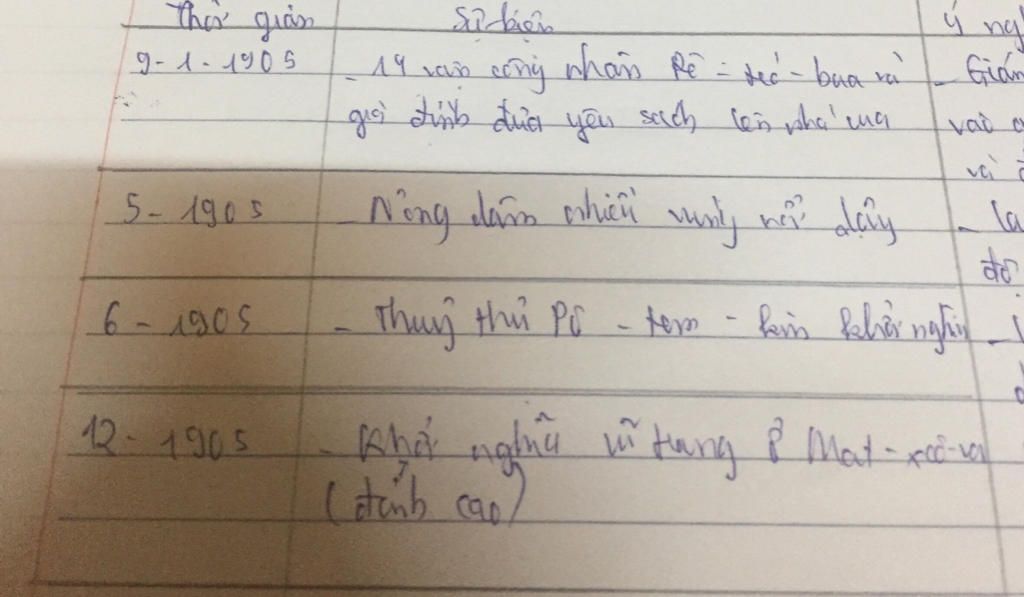 Thời gian Sự kiện Ý ng
9-1-1905 - 14 vạn công nhân Pê-téc-bua và - Gián
gia đình đưa yêu sách lên nhà vua vào
và
5-1905 - Nông dân nhiều vùng nổi dậy - la
đo
6-1905 - Thuỷ thủ Pô-tem-kin khởi nghĩa -
12-1905 - Khởi nghĩa vũ trang ở Mat-xcơ-va
(đỉnh cao)